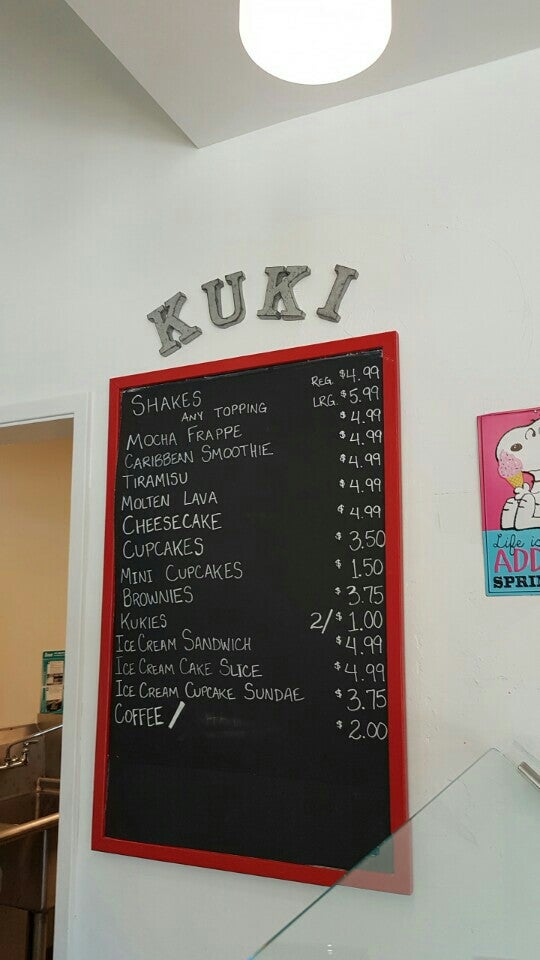 KUKI
SHAKES REG. $4.99
ANY TOPPING LRG. $5.99
MOCHA FRAPPE $4.99
CARIBBEAN SMOOTHIE $4.99
TIRAMISU $4.99
MOLTEN LAVA $4.99
CHEESECAKE $4.99
CUPCAKES $3.50
MINI CUPCAKES $1.50
BROWNIES $3.75
KUKIES 2/$1.00
ICE CREAM SANDWICH $4.99
ICE CREAM CAKE SLICE $4.99
ICE CREAM CUPCAKE SUNDAE $3.75
COFFEE / $2.00
Life is
ADD
SPRIN